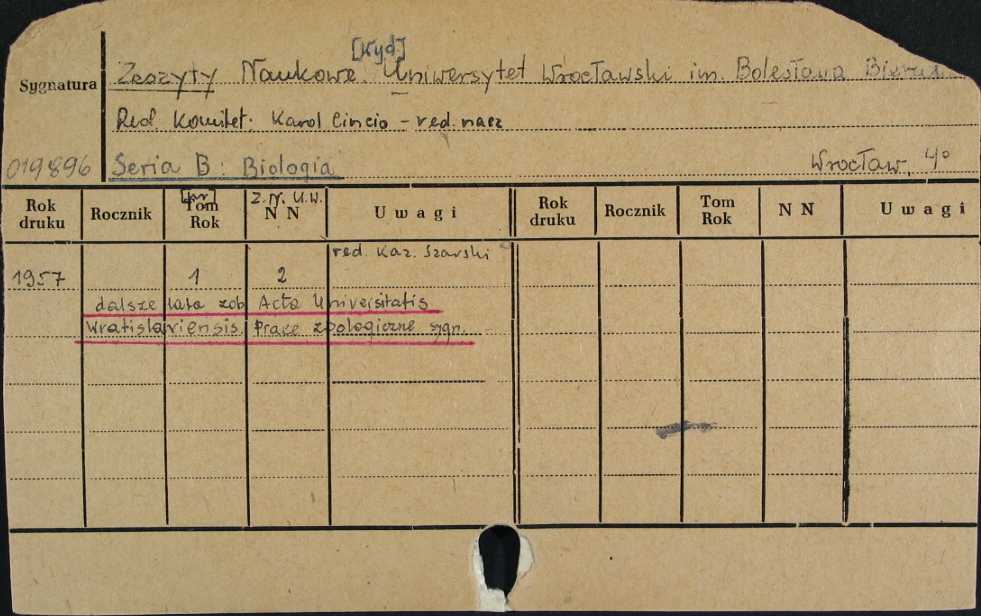 [Wyd]
Sygnatura Zeszyty Naukowe. Uniwersytet Wrocławski im. Bolesława
Red. Komitet. Karol Cincio - red. nacz
019896 Seria B: Biologia Wrocław, 4°
Rok druku Rocznik Tom Rok Z.N. U.W. N N Uwagi Rok druku Rocznik Tom Rok N N Uwagi
red. Kaz. Szarski
1957 1 2
dalsze lata zob Acta Universitatis
Wratislaviensis. Prace zoologiczne sygn.